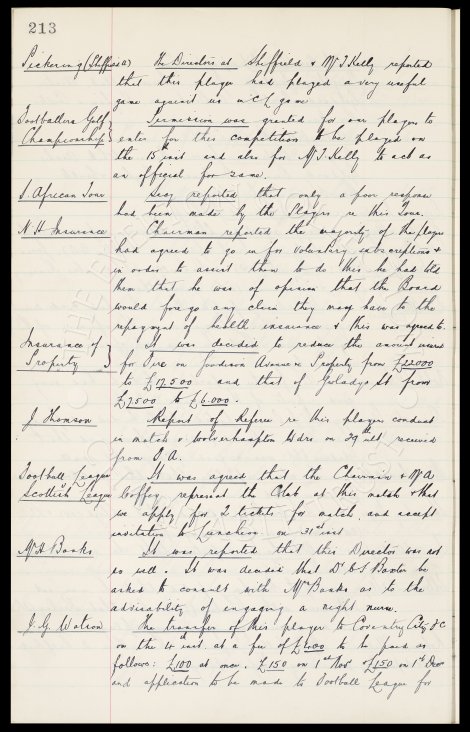 213
Pickering (Sheffield) The Directors at Sheffield & Mr T Kelly reported
that this player had played a very useful
game against us in C L game
Footballers Golf Permission was granted for our players to
Championship enter for this competition to be played on
the 15th inst and also for Mr T Kelly to act as
an official for same.
S. African Tour Secy reported that only a poor response
had been made by the Players re this Tour.
N. H. Insurance Chairman reported the majority of the players
had agreed to go in for voluntary subscriptions &
in order to assist them to do this he had told
them that he was of opinion that the Board
would forego any claim they may have to the
repayment of health insurance & this was agreed to.
Insurance of It was decided to reduce the amount insured
Property for Fire on Goodison Avenue Property from £22000
to £17500 and that of Gwladys St from
£7500 to £6.000.
J Thomson Report of Referee re this players conduct
in match v. Wolverhampton Wdrs on 29th ult received
from F.A.
Football League It was agreed that the Chairman & Mr A
Scottish League Coffey represent the Club at this match & that
we apply for 2 tickets for match and accept
invitation to Luncheon on 31st inst
Mr H Banks It was reported that this Director was not
so well. It was decided that Dr C S Baxter be
asked to consult with Mrs Banks as to the
advisability of engaging a night nurse.
J. G. Watson The transfer of this player to Coventry City F C
on the inst. at a fee of £400 to be paid as
follows: £100 at once, £150 on 1st Nov & £150 on 1st Decr
and application to be made to Football League for